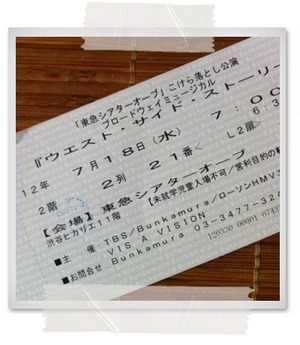 「東急シアターオーブ」こけら落とし公演
ブロードウェイミュージカル
『ウエスト・サイド・ストーリー
12年 7月18日(水) 7:00
6:3
2階 2列 21番 L2扉
【会場】東急シアターオーブ
渋谷ヒカリエ11階 【未就学児童入場不可/営利目的の転
■主 催 TBS/Bunkamura/ローソンHMV
VIS A VISION
■お問合せ Bunkamura 03-3477-324
120330 00001 0743